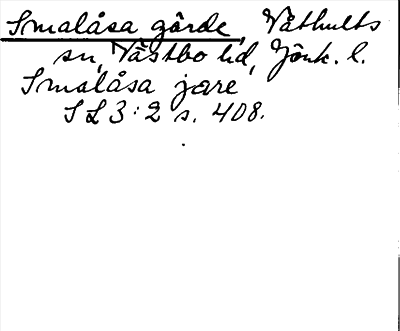 Smalåsa gärde, Våthults
sn, Västbo hd, Jönk. l.
Smalåsa jære
S L 3:2 s. 408.